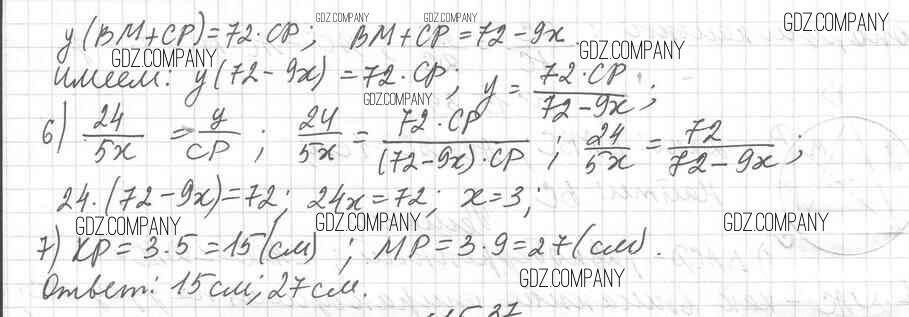 y(BM+CP)=72·CP; BM+CP=72-9x
GDZ.COMPANY GDZ.COMPANY GDZ.COMPANY
GDZ.COMPANY GDZ.COMPANY
имеем: y(72-9x)=72·CP; y=72·CP/72-9x;
GDZ.COMPANY
6) 24/5x = y/CP; 24/5x = 72·CP/(72-9x)·CP; 24/5x = 72/72-9x;
24·(72-9x)=72; 24x=72; x=3;
GDZ.COMPANY GDZ.COMPANY GDZ.COMPANY
7) KP=3·5=15(см); MP=3·9=27(см).
GDZ.COMPANY
Ответ: 15см; 27см.